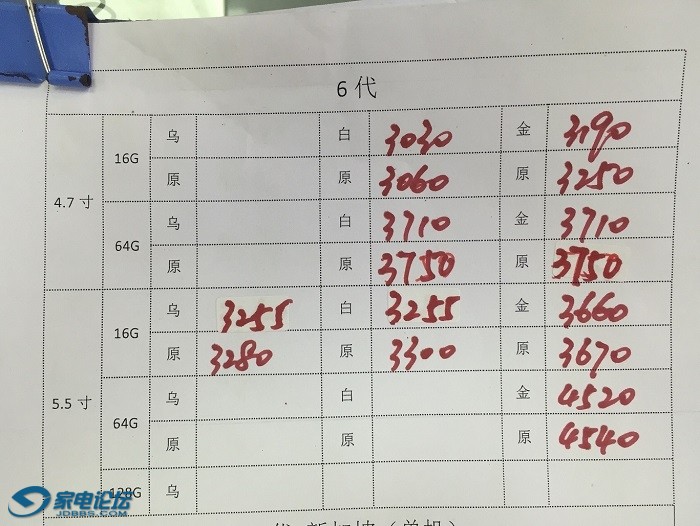 6代
16G 乌 白 3030 金 3190
4.7寸
原 原 3060 原 3250
64G 乌 白 3710 金 3710
原 原 3750 原 3750
16G 乌 3255 白 3255 金 3660
原 3280 原 3300 原 3670
5.5寸
64G 乌 白 金 4520
原 原 原 4540
128G 乌
家电论坛
JDBBS.COM
新加坡(单机)